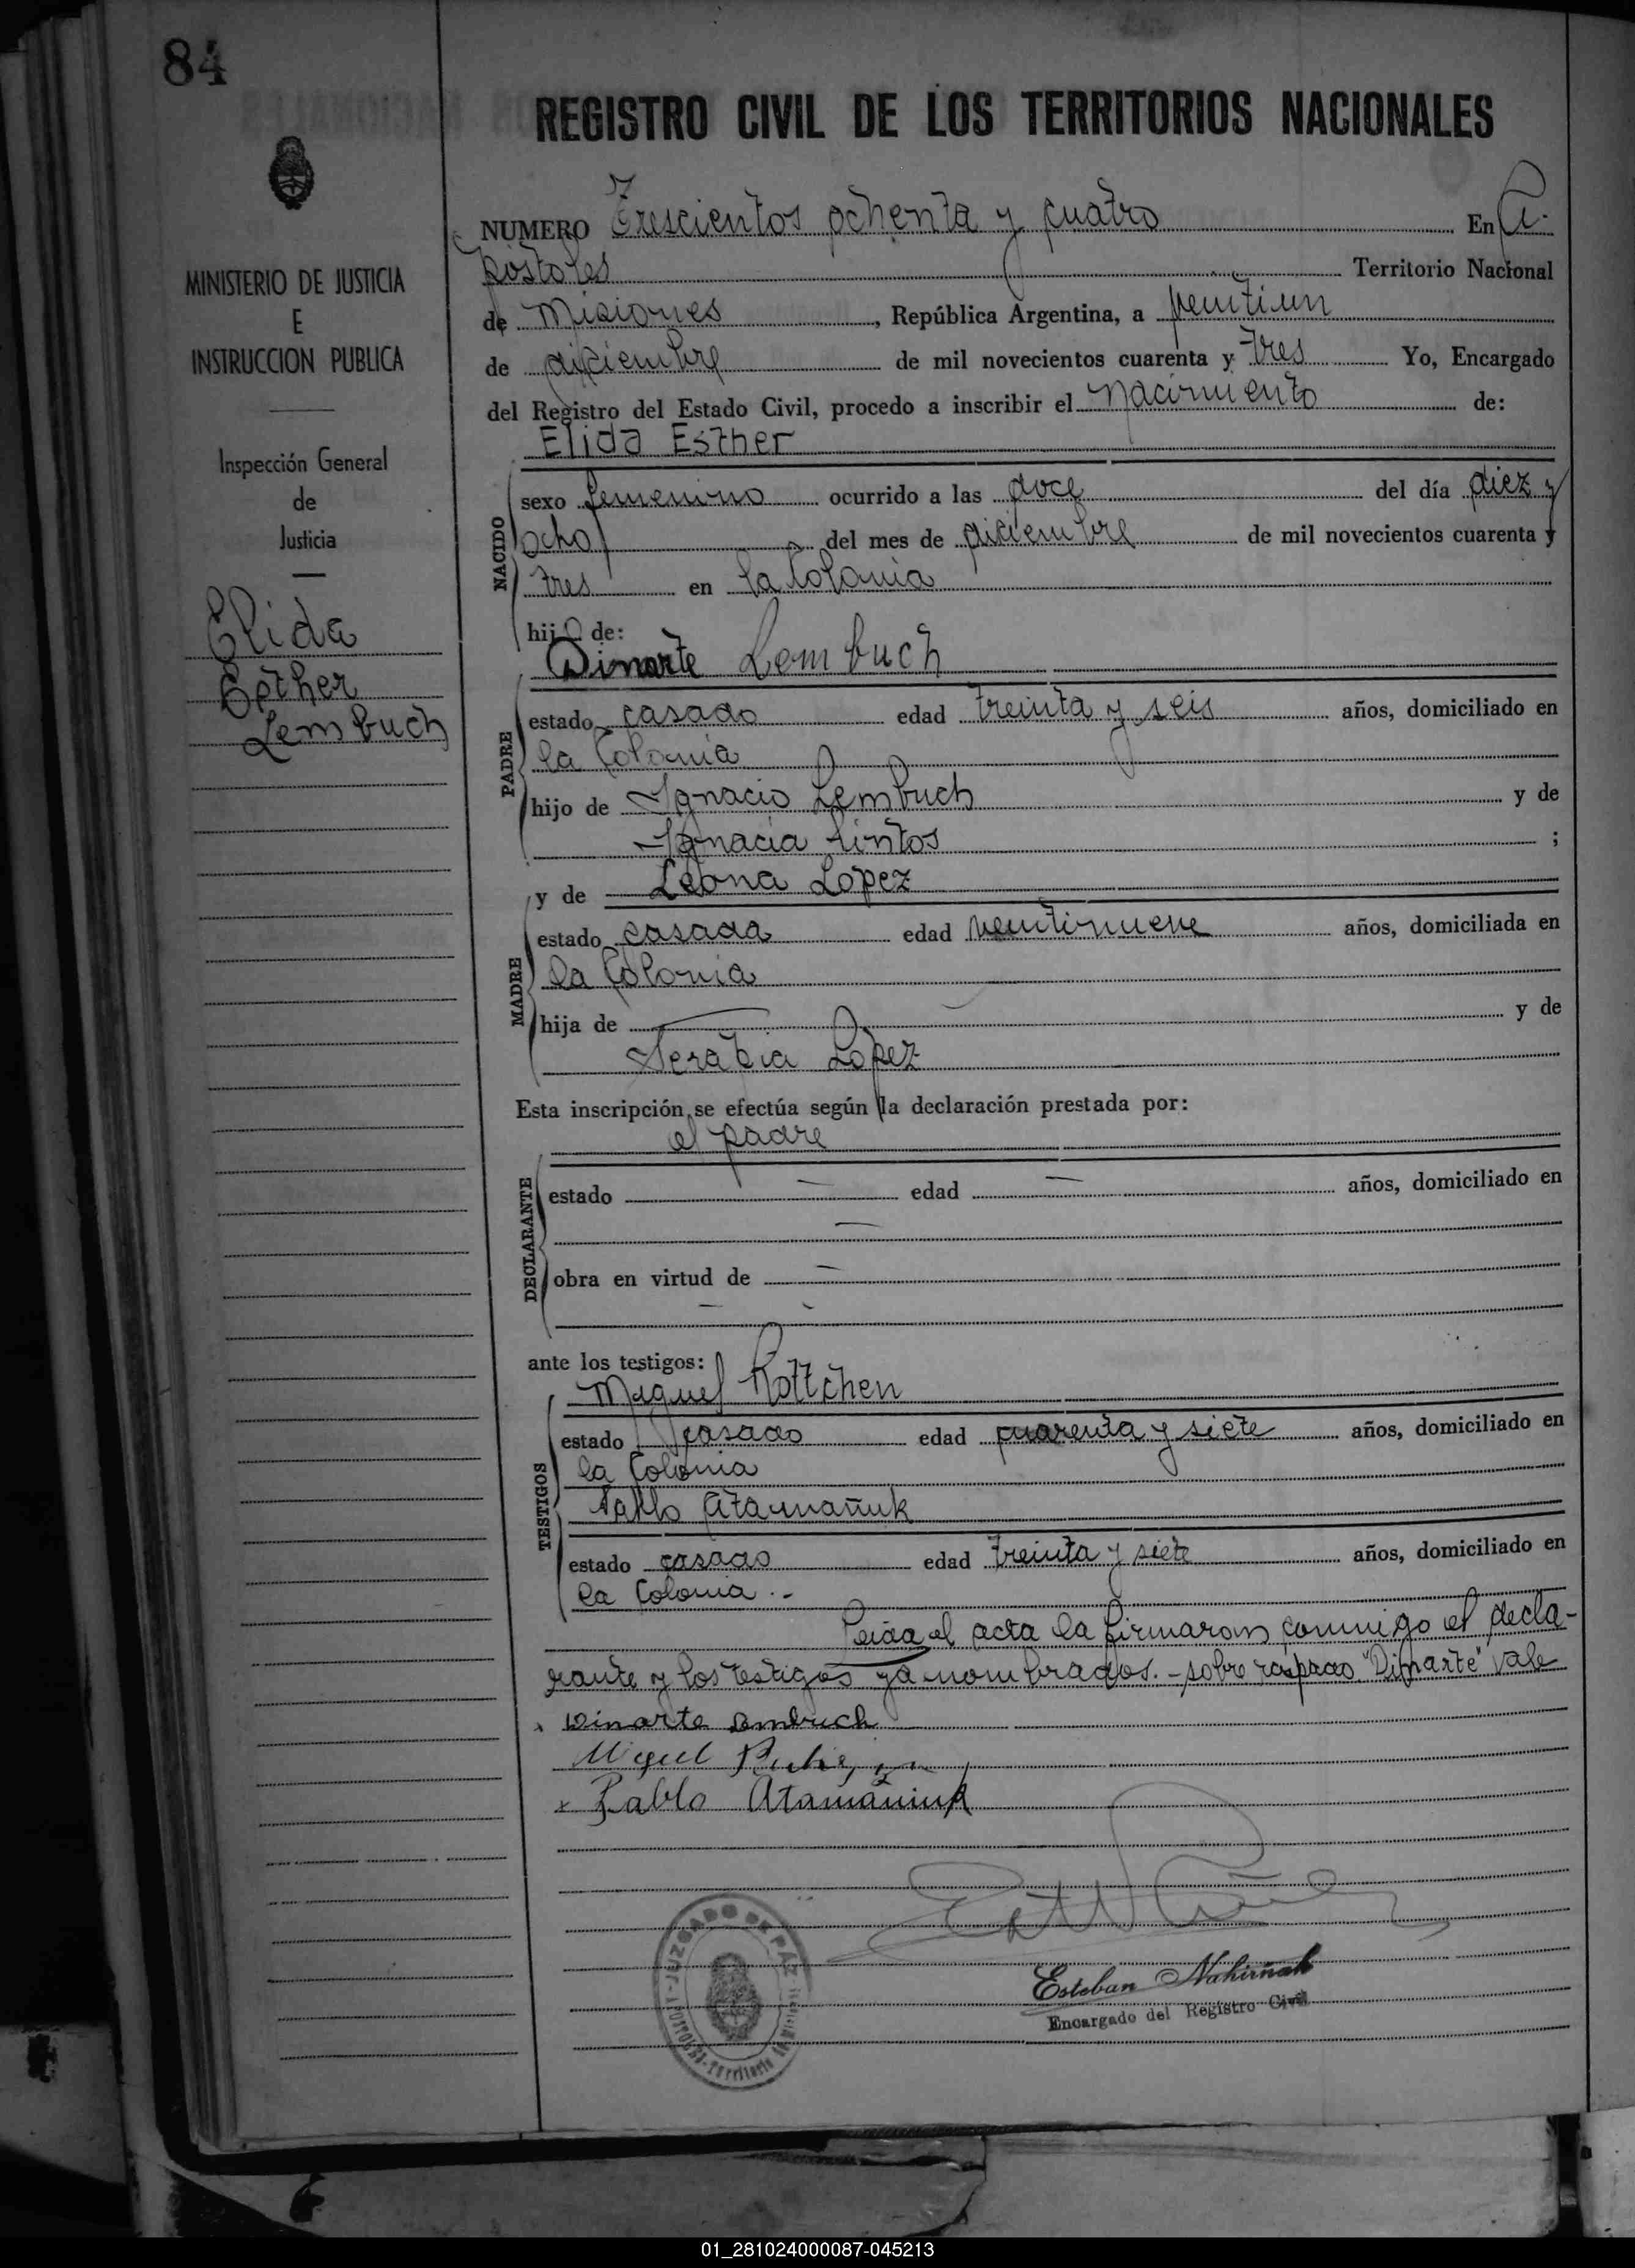 84
REGISTRO CIVIL DE LOS TERRITORIOS NACIONALES
MINISTERIO DE JUSTICIA
E
INSTRUCCION PUBLICA
Inspección General
de
Justicia
Elida
Esther
Lembuch
NUMERO Trescientos ochenta y cuatro En A-
póstoles Territorio Nacional
de Misiones, República Argentina, a veintiun
de diciembre de mil novecientos cuarenta y tres Yo, Encargado
del Registro del Estado Civil, procedo a inscribir el nacimiento de:
Elida Esther
NACIDO
sexo femenino ocurrido a las doce del día diez y
ocho del mes de diciembre de mil novecientos cuarenta y
tres en la Colonia
hija de:
Dinarte Lembuch
PADRE
estado casado edad treinta y seis años, domiciliado en
la Colonia
hijo de Ignacio Lembuch y de
Ignacia Pintos ;
y de Leona Lopez
MADRE
estado casada edad veintinueve años, domiciliada en
la Colonia
hija de — y de
Serabia Lopez
Esta inscripción se efectúa según la declaración prestada por:
el padre
DECLARANTE
estado — edad — años, domiciliado en
—
obra en virtud de —
—
ante los testigos:
Miguel Rottchen
TESTIGOS
estado casado edad cuarenta y siete años, domiciliado en
la Colonia
Pablo Atamañuk
estado casado edad treinta y siete años, domiciliado en
la Colonia.-
Leida el acta la firmaron conmigo el decla-
rante y los testigos ya nombrados.-sobre raspado "Dinarte" vale
Dinarte Lembuch
Miguel
x Pablo Atamaniuk
JUZGADO DE PAZ
APOSTOLES-Territorio de Misiones
Esteban Nahirñak
Encargado del Registro Civil
01_281024000087-045213